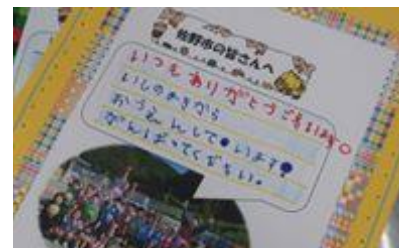 佐野市の皆さんへ
いつもありがとうございます
いしのまきから
おうえんしています
がんばってください。